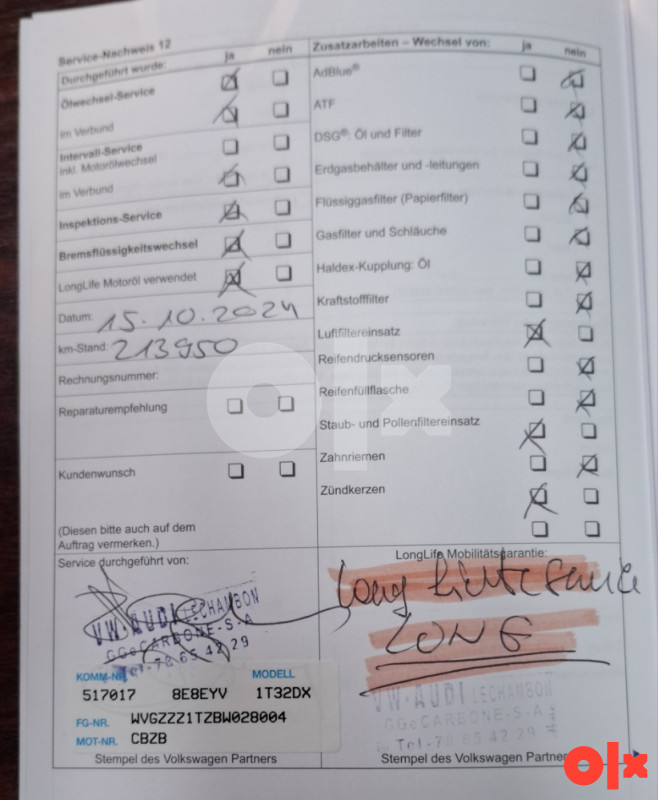 olx
Service-Nachweis 12
ja nein
Durchgeführt wurde:
Ölwechsel-Service
im Verbund
Intervall-Service
inkl. Motorölwechsel
im Verbund
Inspektions-Service
Bremsflüssigkeitswechsel
LongLife Motoröl verwendet
Datum: 15.10.2024
km-Stand: 213950
Rechnungsnummer:
Reparaturempfehlung
Kundenwunsch
(Diesen bitte auch auf dem
Auftrag vermerken.)
Zusatzarbeiten – Wechsel von: ja nein
AdBlue®
ATF
DSG®: Öl und Filter
Erdgasbehälter und -leitungen
Flüssiggasfilter (Papierfilter)
Gasfilter und Schläuche
Haldex-Kupplung: Öl
Kraftstofffilter
Luftfiltereinsatz
Reifendrucksensoren
Reifenfüllflasche
Staub- und Pollenfiltereinsatz
Zahnriemen
Zündkerzen
olx
Service durchgeführt von:
VW-AUDI LECHAMBON
GGeCARBONE-S.A
Tel-78 65 42 29
KOMM-NR. MODELL
517017 8E8EYV 1T32DX
FG-NR. WVGZZZ1TZBW028004
MOT-NR. CBZB
Stempel des Volkswagen Partners
LongLife Mobilitätsgarantie:
Long
VW-AUDI LECHAMBON
GGeCARBONE-S.A
Tel-78 65 42 29
Stempel des Volkswagen Partners
olx